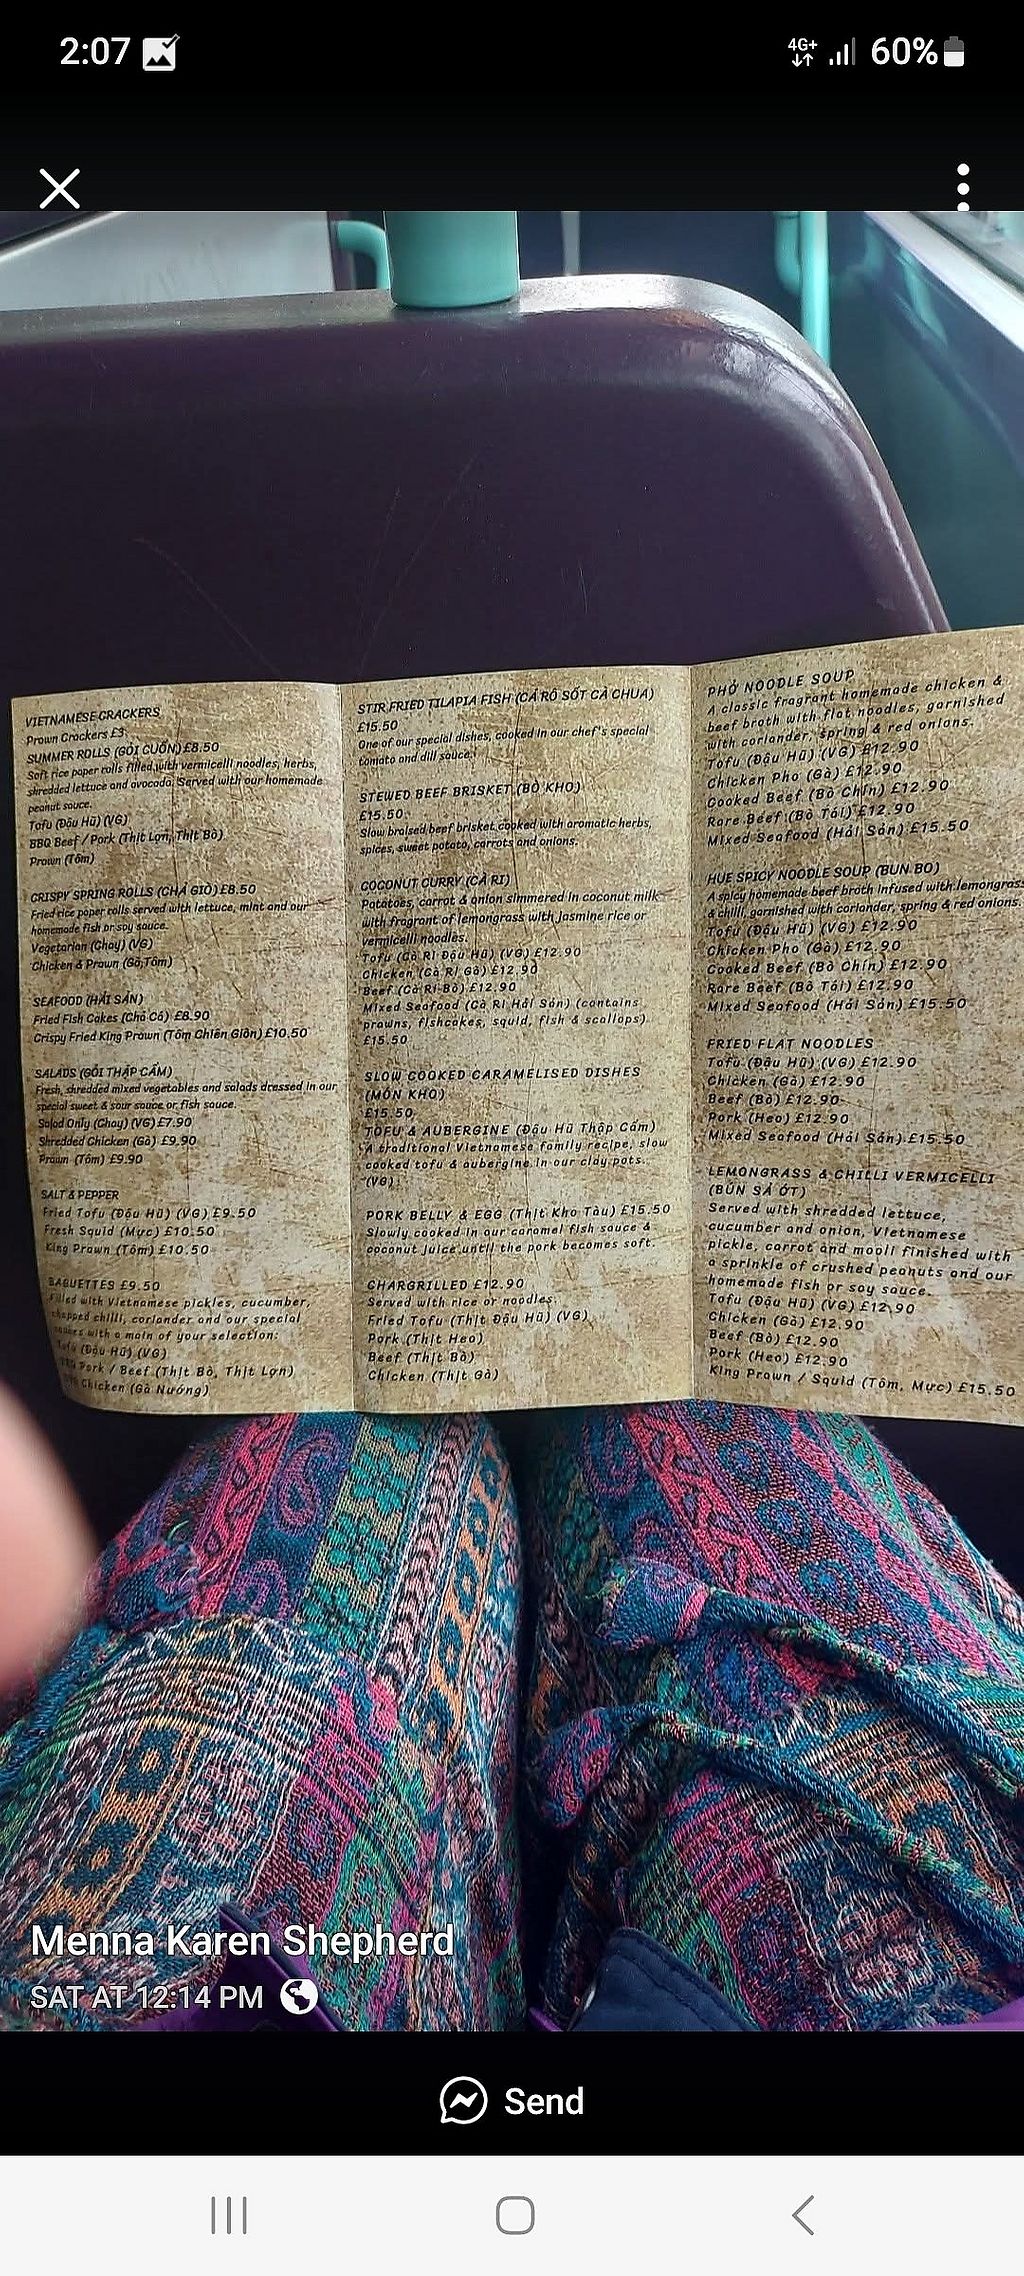 2:07
4G+
60%
VIETNAMESE CRACKERS
Prawn Crackers £3
SUMMER ROLLS (GỎI CUỐN) £8.50
Soft rice paper rolls filled with vermicelli noodles, herbs,
shredded lettuce and avocado. Served with our homemade
peanut sauce.
Tofu (Đậu Hũ) (VG)
BBQ Beef / Pork (Thịt Lợn, Thịt Bò)
Prawn (Tôm)
CRISPY SPRING ROLLS (CHẢ GIÒ) £8.50
Fried rice paper rolls served with lettuce, mint and our
homemade fish or soy sauce.
Vegetarian (Chay) (VG)
Chicken & Prawn (Gà,Tôm)
SEAFOOD (HẢI SẢN)
Fried Fish Cakes (Chả Cá) £8.90
Crispy Fried King Prawn (Tôm Chiên Giòn) £10.50
SALADS (GỎI THẬP CẨM)
Fresh, shredded mixed vegetables and salads dressed in our
special sweet & sour sauce or fish sauce.
Salad Only (Chay) (VG) £7.90
Shredded Chicken (Gà) £9.90
Prawn (Tôm) £9.90
SALT & PEPPER
Fried Tofu (Đậu Hũ) (VG) £9.50
Fresh Squid (Mực) £10.50
King Prawn (Tôm) £10.50
BAGUETTES £9.50
Filled with Vietnamese pickles, cucumber,
chopped chilli, coriander and our special
sauces with a main of your selection:
Tofu (Đậu Hũ) (VG)
Pork / Beef (Thịt Bò, Thịt Lợn)
Chicken (Gà Nướng)
STIR FRIED TILAPIA FISH (CÁ RÔ SỐT CÀ CHUA)
£15.50
One of our special dishes, cooked in our chef's special
tomato and dill sauce.
STEWED BEEF BRISKET (BÒ KHO)
£15.50
Slow braised beef brisket cooked with aromatic herbs,
spices, sweet potato, carrots and onions.
COCONUT CURRY (CÀ RI)
Potatoes, carrot & onion simmered in coconut milk
with fragrant of lemongrass with jasmine rice or
vermicelli noodles.
Tofu (Cà Ri Đậu Hũ) (VG) £12.90
Chicken (Cà Ri Gà) £12.90
Beef (Cà Ri Bò) £12.90
Mixed Seafood (Cà Ri Hải Sản) (contains
prawns, fishcakes, squid, fish & scallops)
£15.50
SLOW COOKED CARAMELISED DISHES
(MÓN KHO)
£15.50
TOFU & AUBERGINE (Đậu Hũ Thập Cẩm)
A traditional Vietnamese family recipe, slow
cooked tofu & aubergine in our clay pots.
(VG)
PORK BELLY & EGG (Thịt Kho Tàu) £15.50
Slowly cooked in our caramel fish sauce &
coconut juice until the pork becomes soft.
CHARGRILLED £12.90
Served with rice or noodles.
Fried Tofu (Thịt Đậu Hũ) (VG)
Pork (Thịt Heo)
Beef (Thịt Bò)
Chicken (Thịt Gà)
PHỞ NOODLE SOUP
A classic fragrant homemade chicken &
beef broth with flat noodles, garnished
with coriander, spring & red onions.
Tofu (Đậu Hũ) (VG) £12.90
Chicken Pho (Gà) £12.90
Cooked Beef (Bò Chín) £12.90
Rare Beef (Bò Tái) £12.90
Mixed Seafood (Hải Sản) £15.50
HUE SPICY NOODLE SOUP (BUN BO)
A spicy homemade beef broth infused with lemongrass
& chilli, garnished with coriander, spring & red onions.
Tofu (Đậu Hũ) (VG) £12.90
Chicken Pho (Gà) £12.90
Cooked Beef (Bò Chín) £12.90
Rare Beef (Bò Tái) £12.90
Mixed Seafood (Hải Sản) £15.50
FRIED FLAT NOODLES
Tofu (Đậu Hũ) (VG) £12.90
Chicken (Gà) £12.90
Beef (Bò) £12.90
Pork (Heo) £12.90
Mixed Seafood (Hải Sản) £15.50
LEMONGRASS & CHILLI VERMICELLI
(BÚN SẢ ỚT)
Served with shredded lettuce,
cucumber and onion, Vietnamese
pickle, carrot and mooli finished with
a sprinkle of crushed peanuts and our
homemade fish or soy sauce.
Tofu (Đậu Hũ) (VG) £12.90
Chicken (Gà) £12.90
Beef (Bò) £12.90
Pork (Heo) £12.90
King Prawn / Squid (Tôm, Mực) £15.50
Menna Karen Shepherd
SAT AT 12:14 PM
Send